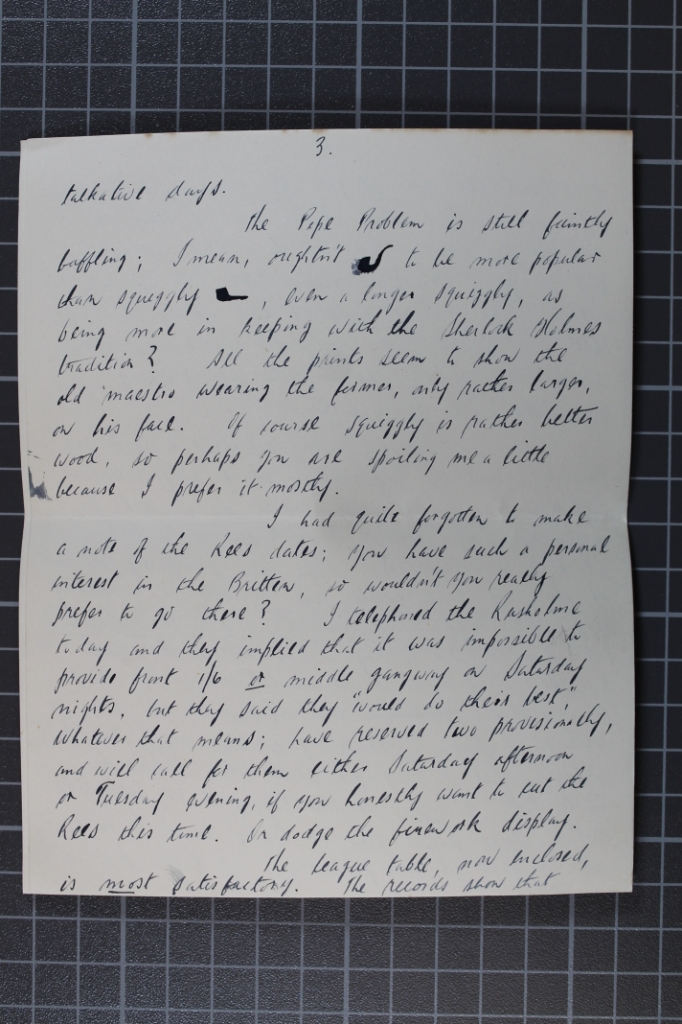 3.
talkative days.
The Pipe Problem is still faintly
baffling; I mean, oughtn't to be more popular
than squiggly , even a longer squiggly, as
being more in keeping with the Sherlock Holmes
tradition? All the prints seem to show the
old maestro wearing the former, only rather larger,
on his face. Of course squiggly is rather better
wood, so perhaps you are spoiling me a little
because I prefer it mostly.
I had quite forgotten to make
a note of the Lees dates; you have such a personal
interest in the Britten, so wouldn't you really
prefer to go there? I telephoned the Rusholme
today and they implied that it was impossible to
provide front 1/6 or middle gangway on Saturday
nights, but they said they "would do their best,"
whatever that means; have reserved two provisionally,
and will call for them either Saturday afternoon
or Tuesday evening, if you honestly want to cut the
Lees this time. Or dodge the firework display.
The league table, now enclosed,
is most satisfactory. The records show that